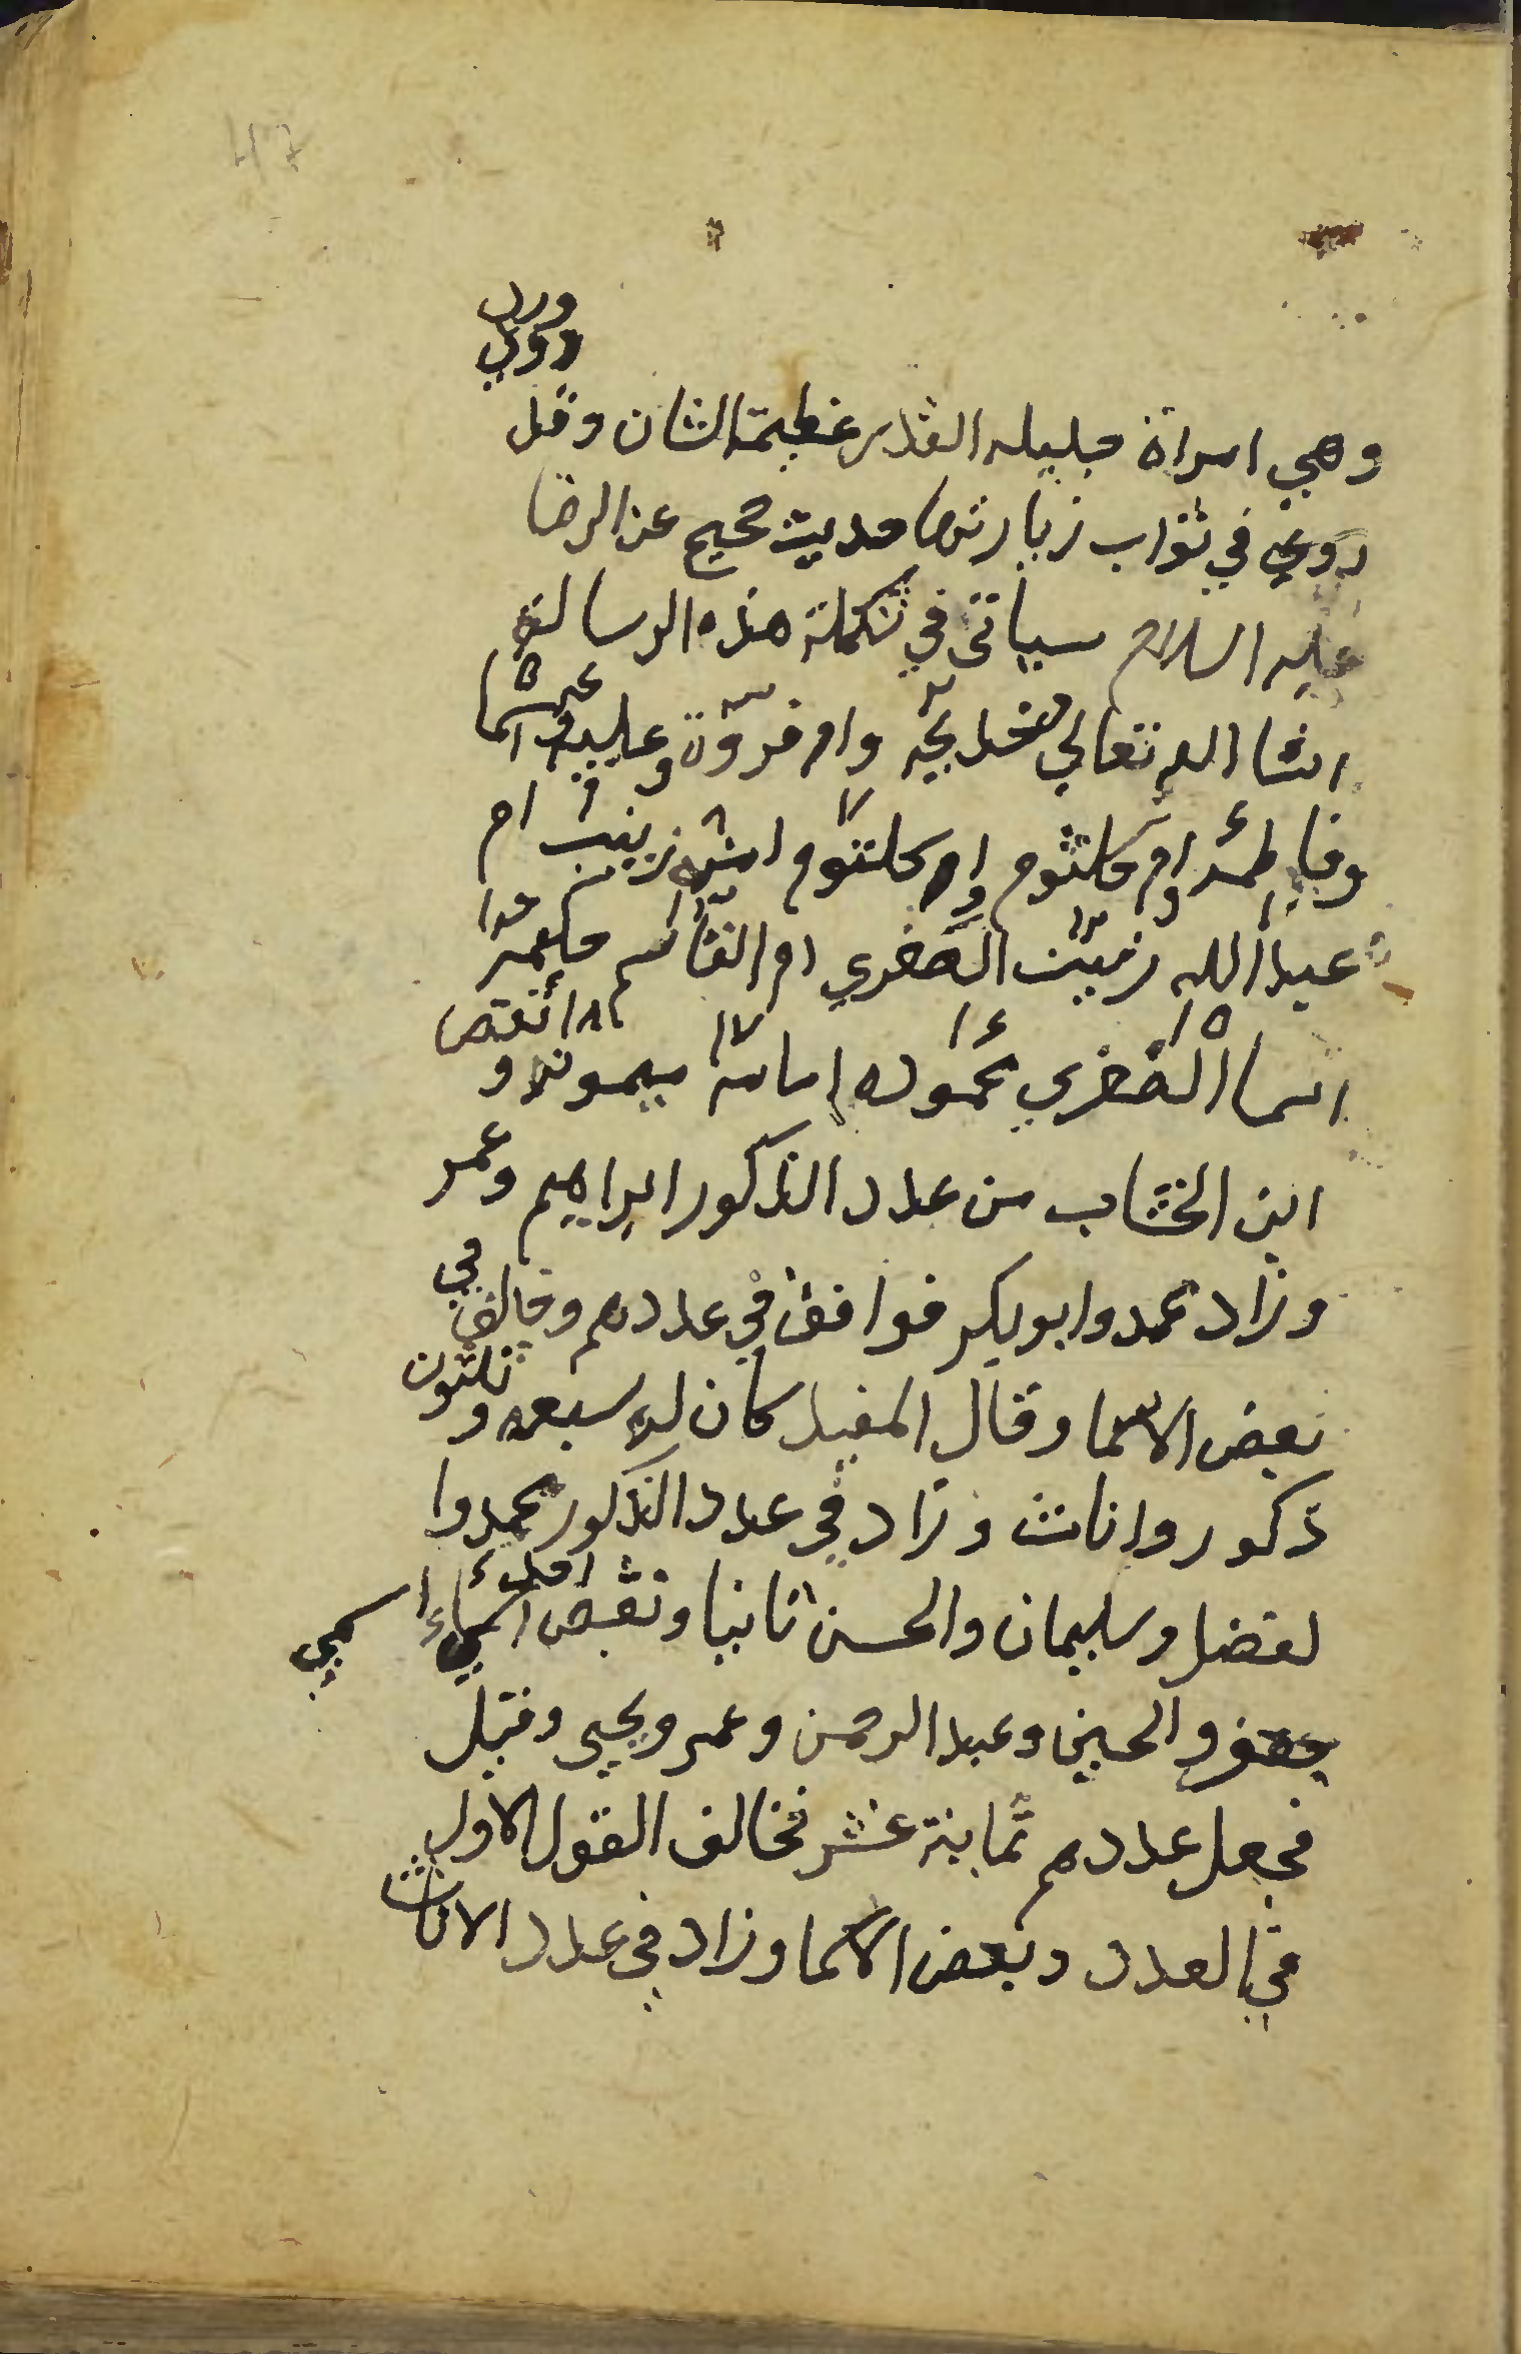 ورد
روي
وهي امراة جليله القدر عظيمة الشان وقد
روي في ثواب زيارتها حديث صحيح عن الرضا
عليه السلام سياتي في تكملة هذه الرسالة
انشا الله تعالى خديجه وام فروة وعليه اسما
وفاطمه وام كلثوم وام كلثوم امنه زينب ام
عبد الله زينب الصغري ام القاسم حكيمه
اسما الصغري محموده امامه ميمونه ونقص
ابن الخشاب من عدد الذكور ابراهيم وعمر
وزاد محمد وابو بكر فوافق في عددهم وخالف في
بعض الاسما وقال المفيد كان له سبعه وثلثون
ذكور واناث وزاد في عدد الذكور محمد وا
لفضل وسليمان والحسن ثانيا ونقص اسماء سمي
جعفر والحسين وعبد الرحمن وعمر ويحيى وقيل
فجعل عددهم ثمانية عشر فخالف القول الاول
في العدد وبعض الاسما وزاد في عدد الاناث